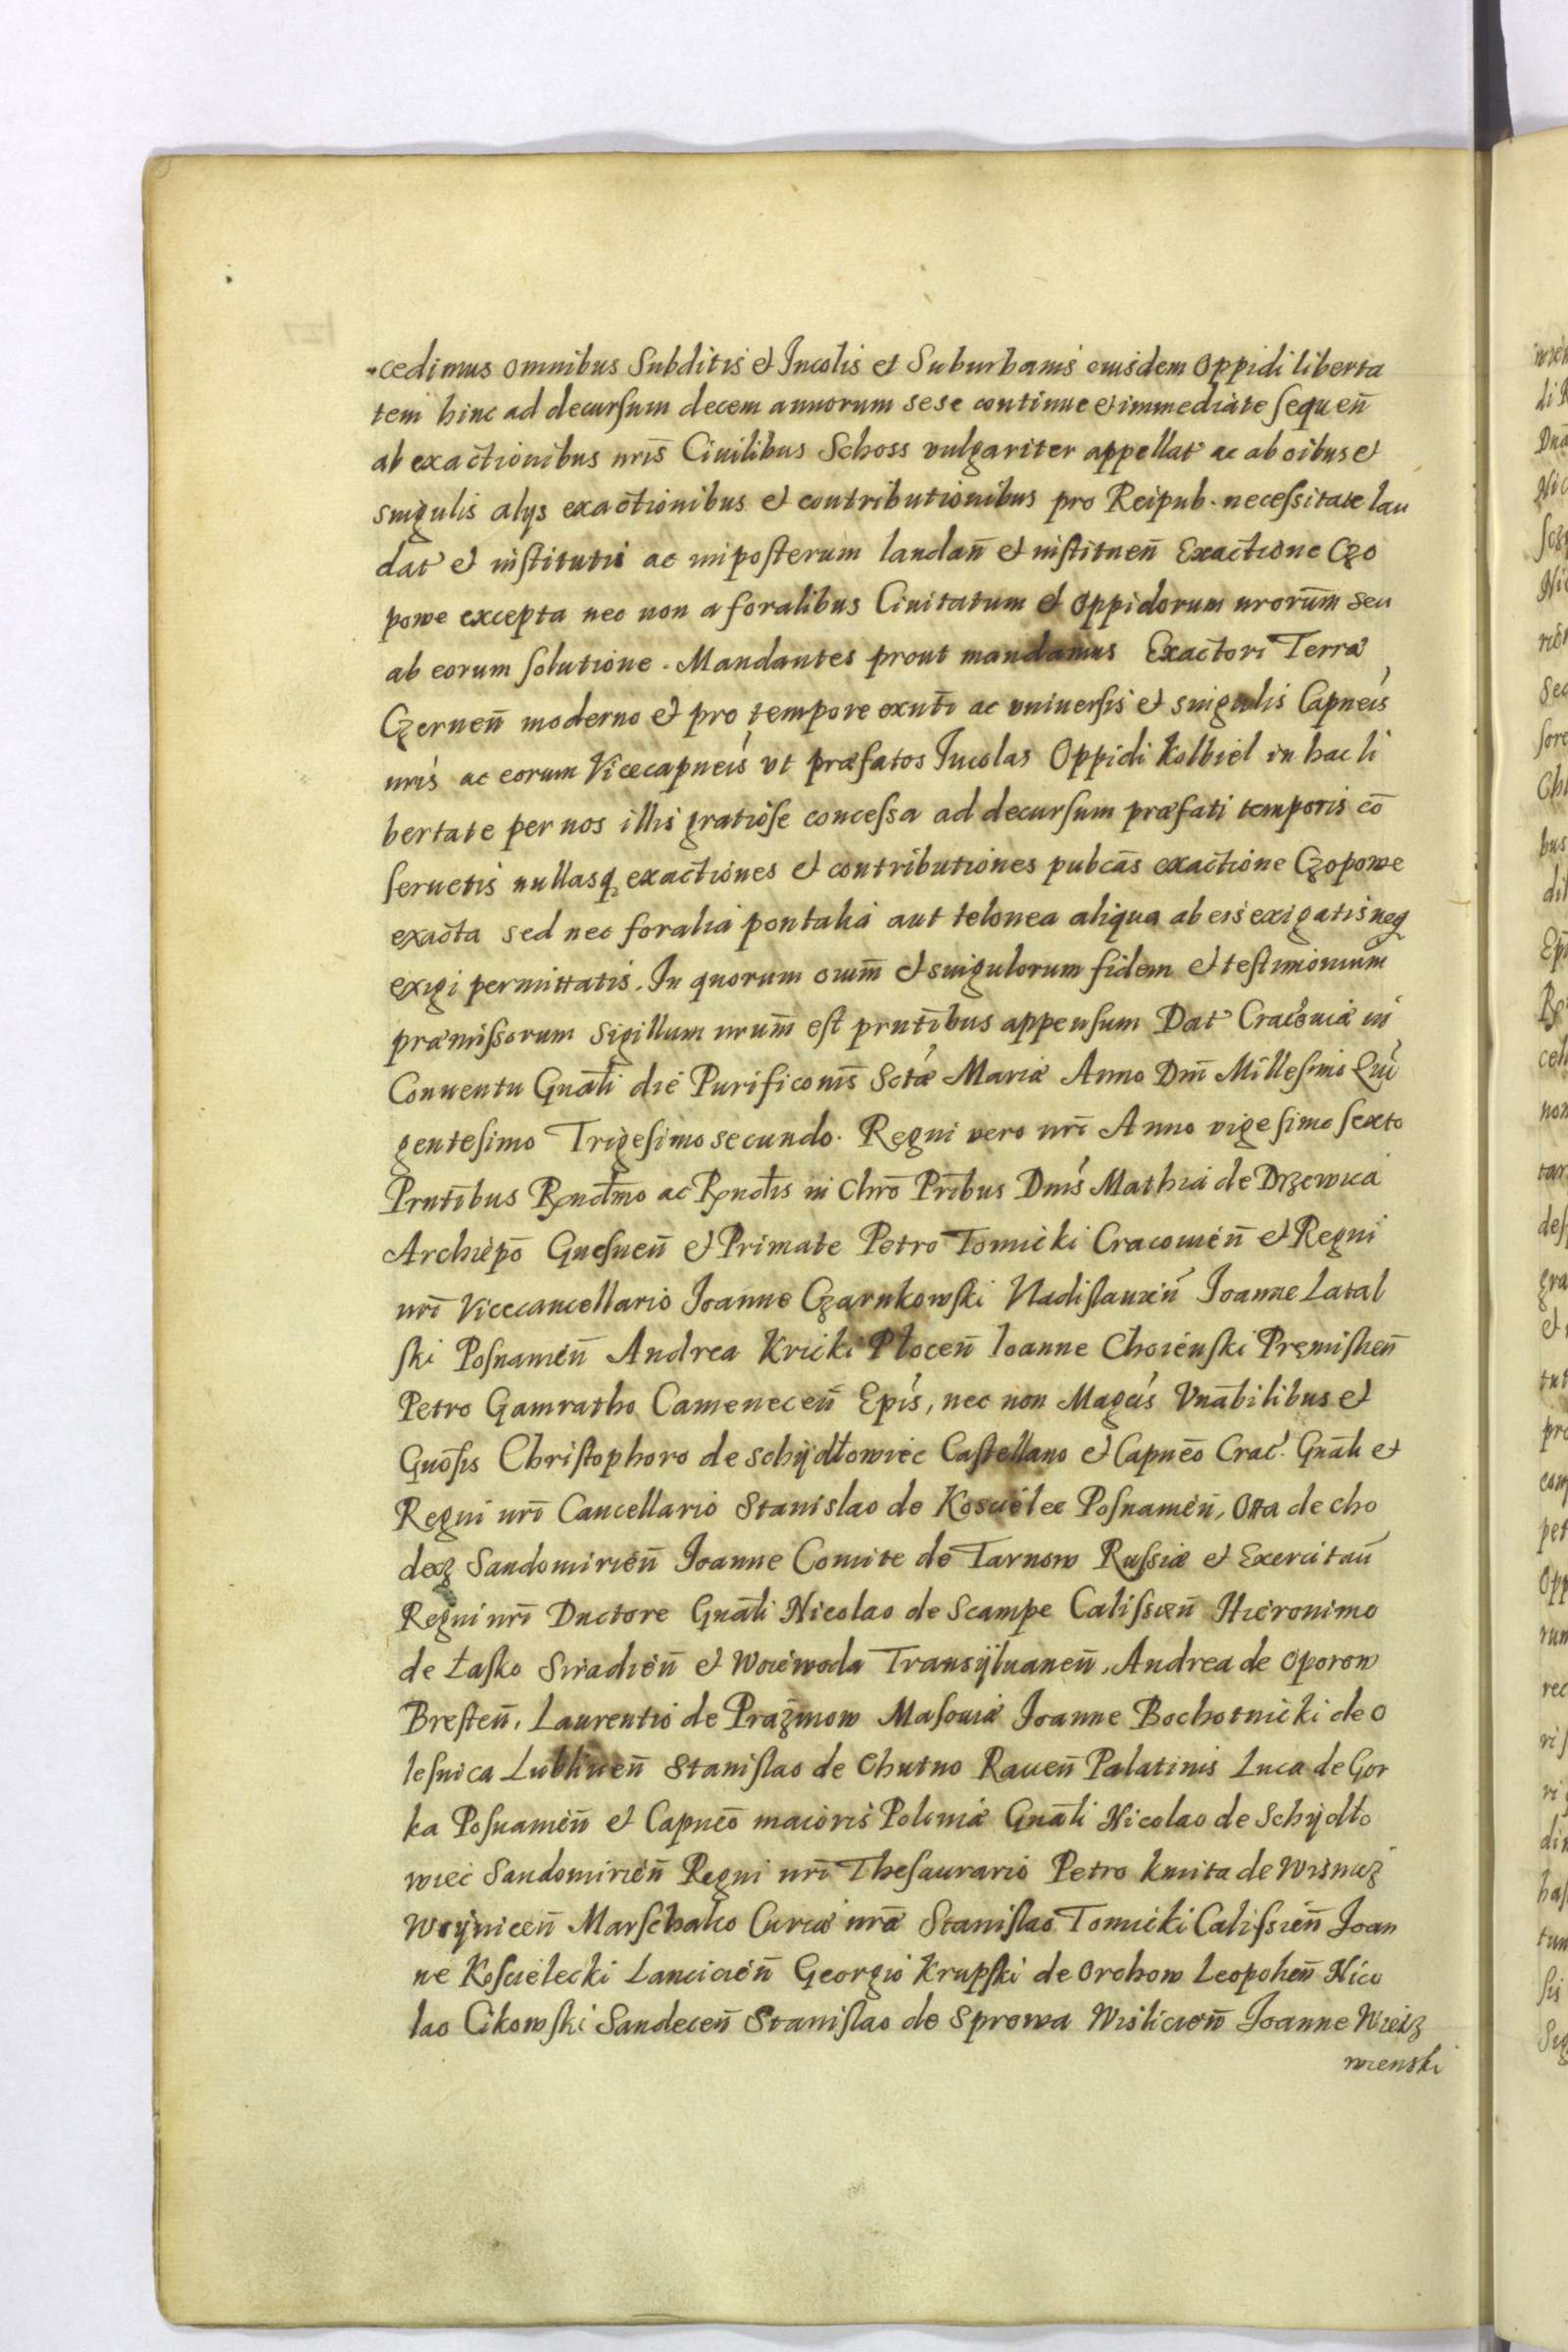 cedimus omnibus Subditis et Incolis et Suburbanis eiusdem Oppidi liberta
tem hinc ad decursum decem annorum sese continue et immediate sequen̄
ab exactionibus nr̄is Ciuilibus Schoss vulgariter appellat ac ab oībus et
singulis alys exactionibus et contributionibus pro Reipub. necessitate lau
dat et institutis ac imposterum laudan̄ et instituen̄ Exactione Czo
powe excepta nec non a foralibus Ciuitatum et Oppidorum nrorum̄ seu
ab eorum solutione. Mandantes prout mandamus Exactori Terræ
Czernen̄ moderno et pro tempore exnt̄i ac vniuersis et singulis Capneis
nris ac eorum Vicecapneis vt præfatos Incolas Oppidi Kolbiel in hac li
bertate per nos illis gratiose concessa ad decursum præfati temporis cō
seruetis nullasq exactiones et contributiones pubcās exactione Czopowe
exacta sed nec foralia pontalia aut telonea aliqua ab eis exigatis neq
exigi permittatis. In quorum oium̄ et singulorum fidem et testimonium
præmissorum Sigillum nrum̄ est prnt̄ibus appensum Dat Cracouiæ in
Conuentu Gnāli die Purificonis̄ Sctæ Mariæ Anno Dni̅ Millesimo Qui
gentesimo Trigesimo secundo. Regni vero nrī Anno vigesimo sexto
Prntībus Rndm̄o ac Rndīs in Chrō Prībus Dnis Mathia de Drzewica
Archiepō Gnesnen̄ et Primate Petro Tomicki Cracouien̄ et Regni
nrī Vicecancellario Joanne Czarnkowski Vladislauien̄ Joanne Latal
ski Posnanien̄ Andrea Kricki Płocen̄ Ioanne Choienski Premislien̄
Petro Gamratho Camenecen̄ Epis, nec non Magcis Vnābilibus et
Gnōsis Christophoro de Schÿdłowiec Castellano et Capneō Crac. Gnāli et
Regni nrī Cancellario Stanislao de Koscielec Posnanien̄, Otta de Cho
decz Sandomirien̄ Joanne Comite de Tarnow Russiæ et Exercituū
Regni nrī Ductore Gnāli Nicolao de Scampe Calissien̄ Hieronimo
de Łasko Siradien̄ et Woiewoda Transÿluanen̄, Andrea de Oporow
Bresten̄, Laurentio de Prazmow Masouiæ Joanne Bochotnicki de O
lesnica Lublinen̄ Stanislao de Chutno Rauen̄ Palatinis Luca de Gor
ka Posnanien̄ et Capneō maioris Poloniæ Gnāli Nicolao de Schÿdło
wiec Sandomirien̄ Regni nrī Thesaurario Petro kmita de Wisnicz
Woÿnicen̄ Marschalco Curiæ nræ Stanislao Tomicki Calissien̄ Joan
ne Koscielecki Lancicien̄ Georgio Krupski de Orchow Leopolien̄ Nico
lao Cikowski Sandecen̄ Stanislao de Sprowa Wislicien̄ Joanne Wielz
wienski